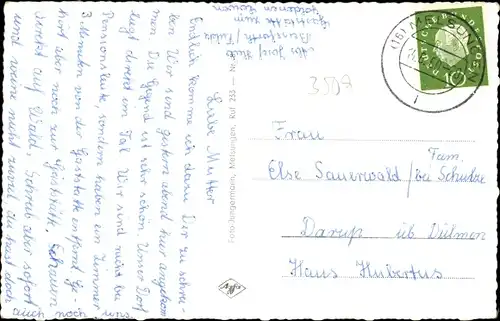 Abs. Josef Aule
Beiseförth / Fulda
Gaststätte zum
goldenen Löwen
Liebe Mutter
Endlich komme ich dazu Dir zu schrei-
ben. Wir sind gestern abend hier angekom
men. Die Gegend ist sehr schön. Unser Dorf
liegt direkt im Tal. Wir sind nicht bei
Pensionsleute, sondern haben ein Zimmer
3 Minuten von der Gaststätte entfernt. Ge-
hört aber noch zur Gaststätte. Schauen
direkt auf Wald. Schreib aber sofort
und weine nicht zuviel. Du hast
doch auch noch uns.
Foto-Jungermann, Melsungen, Ruf 255
3507
(16) MELSUNGEN
DEUTSCHE BUNDESPOST
10
Frau
Else Sauerwald / bei Fam. Schulze
Darup üb Dülmen
Haus Hubertus